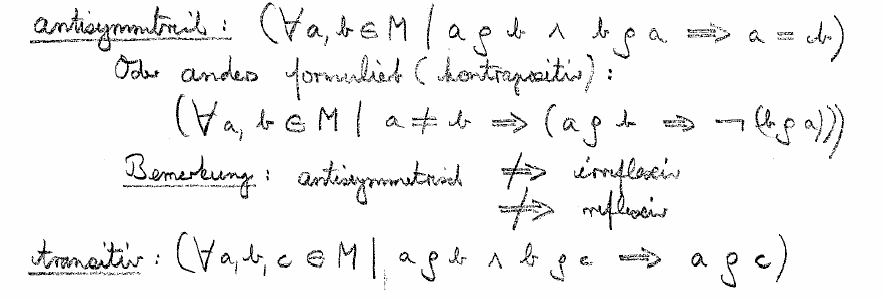 antisymmetrisch: (∀a, b ∈ M | a ϱ b ∧ b ϱ a ⟹ a = b)
Oder anders formuliert (kontrapositiv):
(∀a, b ∈ M | a ≠ b ⟹ (a ϱ b ⟹ ¬(b ϱ a)))
Bemerkung: antisymmetrisch ⇏ irreflexiv
⇏ reflexiv
transitiv: (∀a, b, c ∈ M | a ϱ b ∧ b ϱ c ⟹ a ϱ c)